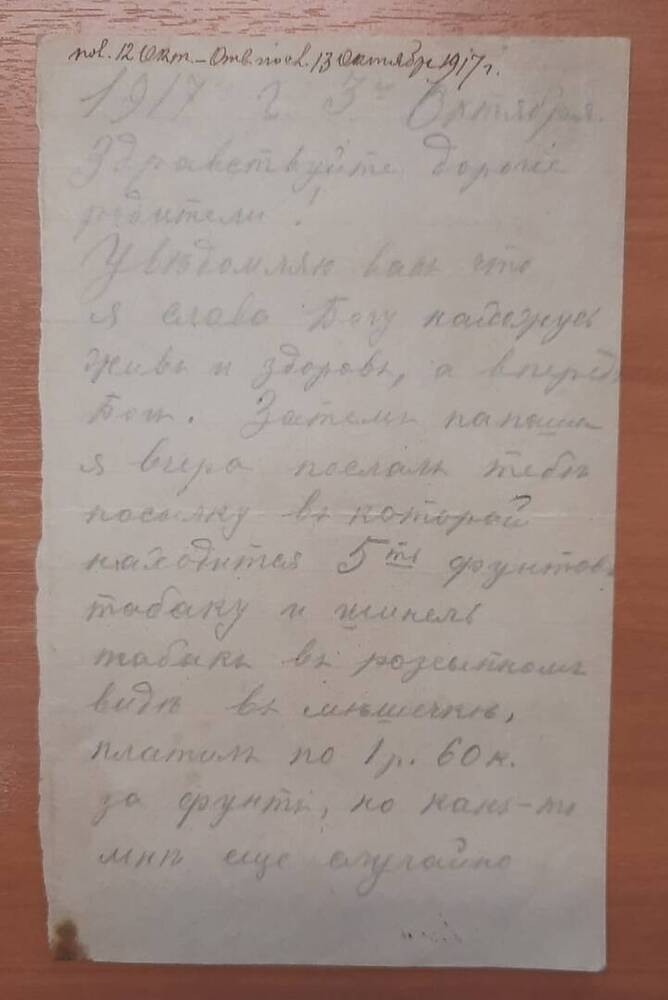 пол. 12 Окт. – Отв. посл. 13 Октября 1917 г.
1917 г 3го Октября.
Здравствуйте дорогіе
родители!
Увѣдомляю васъ что
я слава Богу нахожусь
живъ и здоровъ, а впередъ
Богъ. Затемъ папаша
я вчера послалъ тебѣ
посылку въ которой
находится 5ть фунтовъ
табаку и шинель
табакъ въ розсыпномъ
видѣ въ мѣшечкѣ,
платилъ по 1 р. 60 к.
за фунтъ, но какъ-то
мнѣ еще случайно